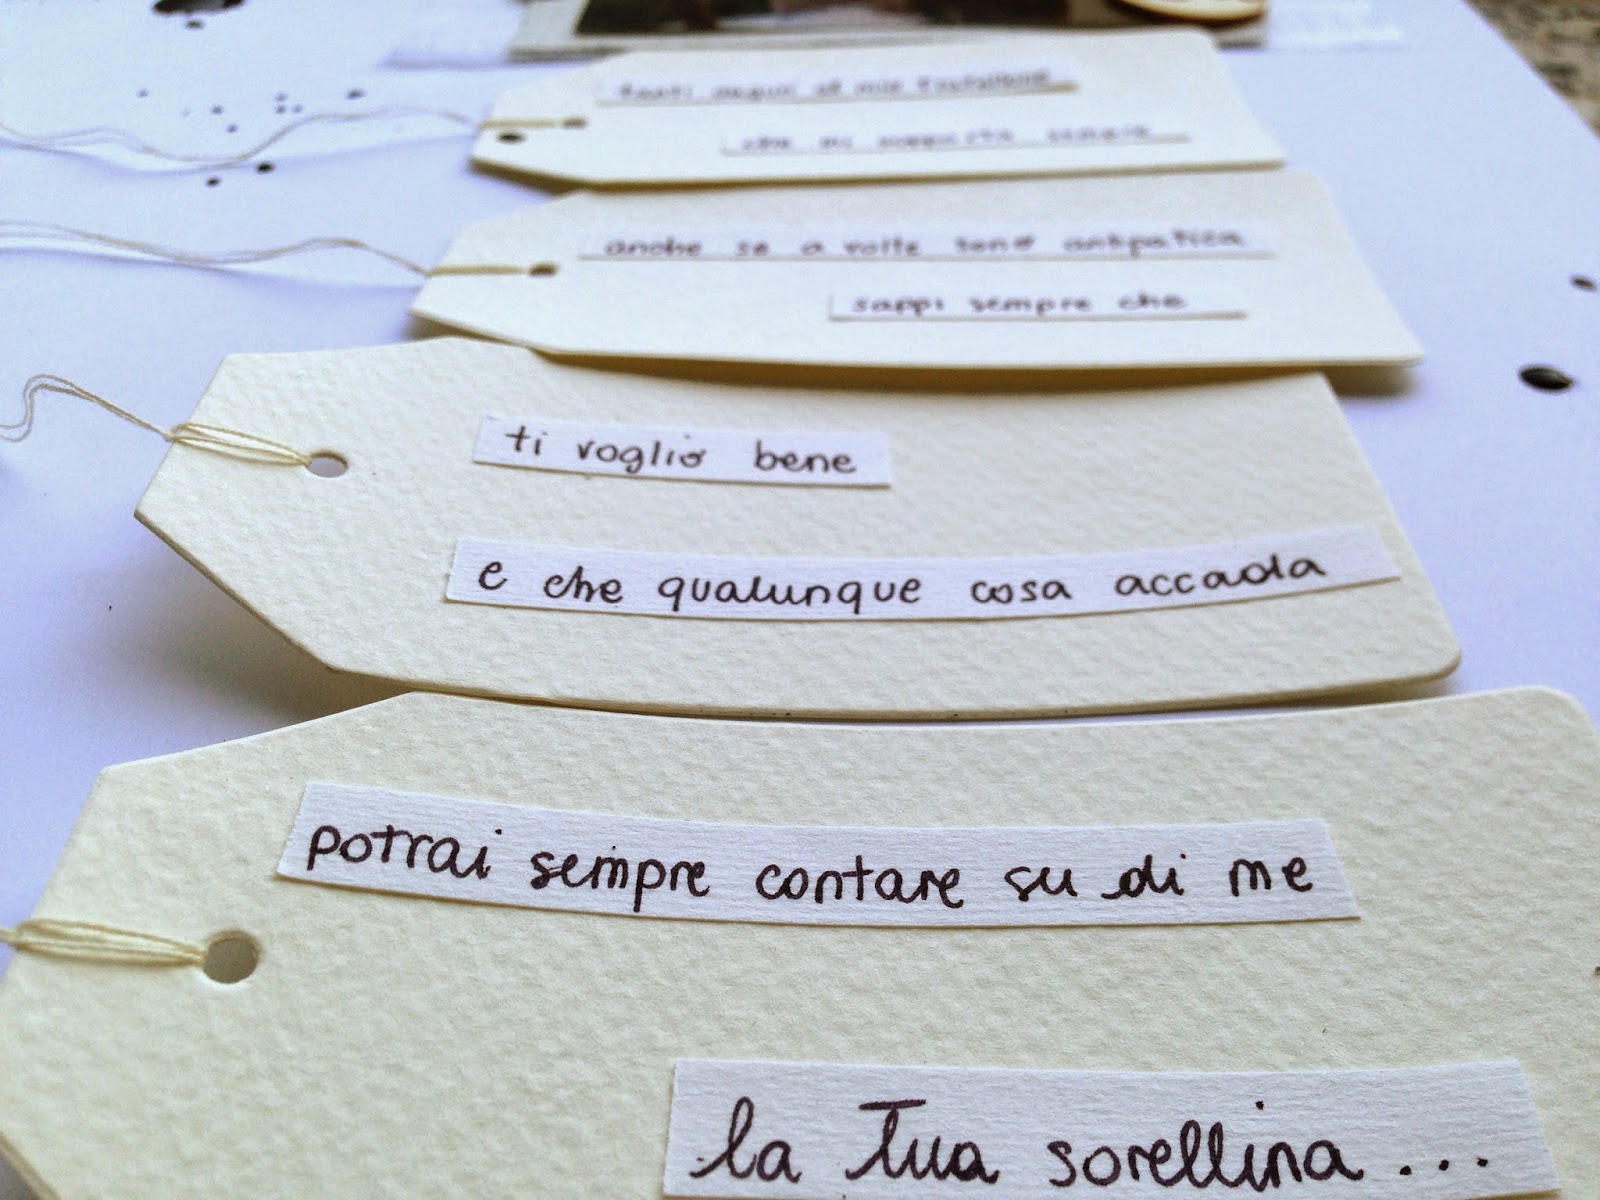 tanti auguri al mio fratellone
che mi sopporta sempre
anche se a volte sono antipatica
sappi sempre che
ti voglio bene
e che qualunque cosa accada
potrai sempre contare su di me
la Tua sorellina...